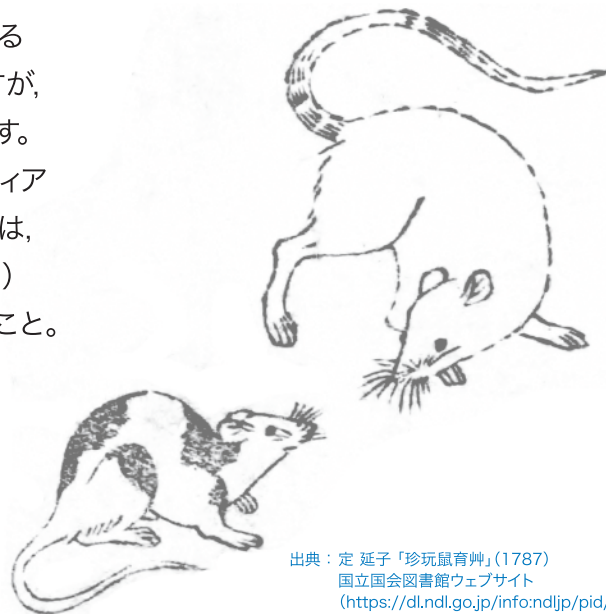 る
すが,
す。
ィア
は,
）
こと。
出典：定 延子「珍玩鼠育艸」（1787）
国立国会図書館ウェブサイト
（https://dl.ndl.go.jp/info:ndljp/pid/